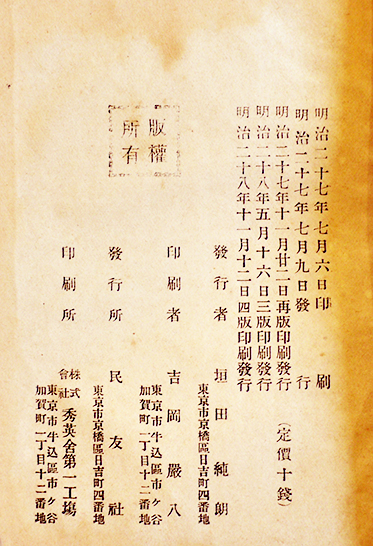 明治二十七年七月六日印刷
明治二十七年七月九日發行
明治二十七年十一月廿二日再版印刷發行
明治二十八年五月十六日三版印刷發行
明治二十八年十一月十二日四版印刷發行
(定價十錢)
版權
所有
發行者 垣田純朗
東京市京橋區日吉町四番地
印刷者 吉岡嚴八
東京市牛込區市ヶ谷
加賀町一丁目十二番地
發行所 民友社
東京市京橋區日吉町四番地
印刷所 株式會社 秀英舍第一工塲
東京市牛込區市ヶ谷
加賀町一丁目十二番地